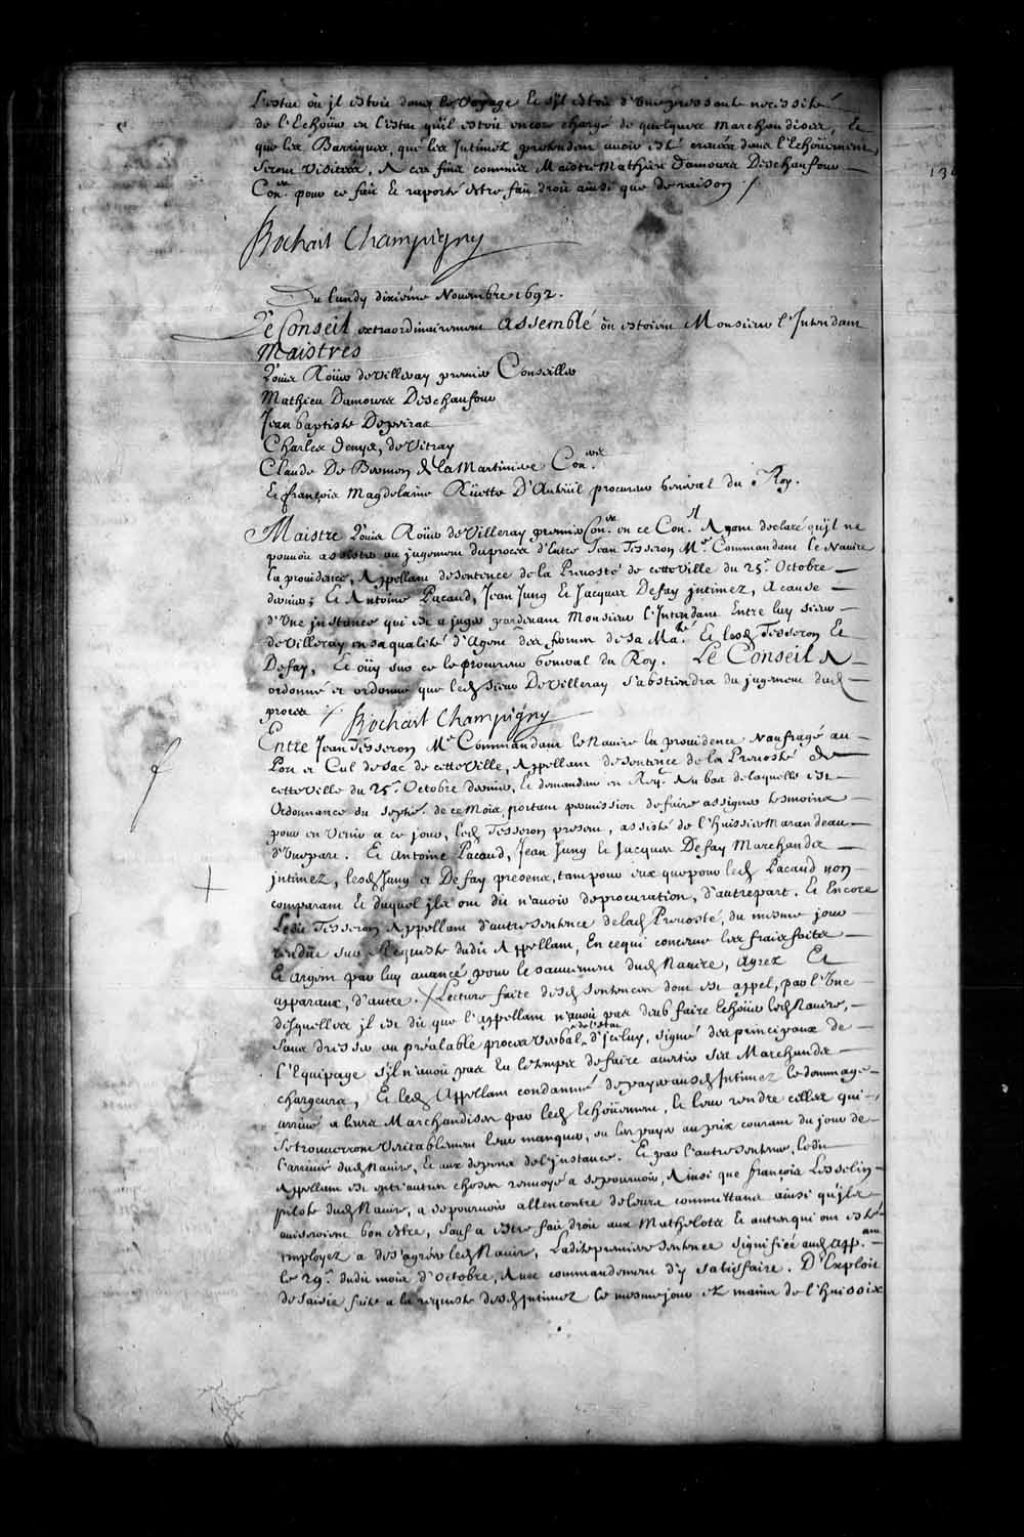 L'estat où jl estoit dans le Voyage et s'jl estoit d'Une pressante necessité
de l'Echoüer en l'estat qu'jl estoit encore chargé de quelques marchandises, Et
que les Barriques que les Jntimez pretendent auoir esté creuées dans l'Echoüement,
seront Visitées, A ces fins commis Maistre Mathieu Damours Deschaufour
Con.er pour ce fait Et raporté estre fait droit ainsi que de raison /.
Bochart Champigny
Du Lundy dixiéme Nouembre 1692.
Le Conseil extraordinairement assemblé où estoient Monsieur l'Intendant
Maistres
Loüis Roüer de Villeray premier Conseiller
Mathieu Damours Deschaufour
Jean baptiste Depeiras
Charles Denys, de Vitray
Claude De Bermen de la Martiniere Con.ers
Et françois Magdelaine Rüette D'Auteüil procureur General du Roy.
Maistre Loüis Roüer de Villeray premier Con.er en ce Con.el Ayant declaré qu'jl ne
pouuoit assister au jugement du procez d'Entre Jean Tesseron M.e Commandant le Nauire
la prouidence, Appellant de sentence de la Preuosté de cette Ville du 25.e Octobre
dernier; Et Antoine Pacaud, Jean Jung Et Jacques Defay jntimez, A cause
d'Une jnstance qui est a juger pardeuant Monsieur l'Intendant Entre luy sieur
de Villeray en sa qualité d'Agent des fermes de sa Ma.té Et lesd. Tesseron Et
Defay, Et oüy sur ce le procureur General du Roy. Le Conseil A
ordonné et ordonne que led. sieur De Villeray s'abstiendra du jugement dud.
procez /. Bochart Champigny
Entre Jean Tesseron M.e Commandant le Nauire la prouidence Naufragé au
Port et Cul de sac de cette Ville, Appellant de sentence de la Preuosté de
cette Ville du 25.e Octobre dernier, Et demandeur en Req.te Au bas de laquelle est
Ordonnance du sept.e de ce Mois, portant permission de faire assigner tesmoins
pour en Venir a ce jour, led. Tesseron present, assisté de l'huissier Marandeau
d'Une part. Et Antoine Pacaud, Jean Jung Et Jacques Defay Marchands
jntimez, lesd. Jung et Defay presens, tant pour eux que pour led. Pacaud non
comparant Et duquel jls ont dit n'auoir de procuration, d'autre part. Et Encore
Ledit Tesseron Appellant d'autre sentence de lad. Preuosté, du mesme jour
rendüe sur Requeste dudit Appellant, En ce qui concerne les frais faits
Et argent par luy auancé pour le sauuement dud. Nauire, agrez Et
apparaux, d'autre. / Lecture faite desd. sentences dont est appel, par l'Une
desquelles jl est dit que l'appellant n'auoit pas deub faire Echoüer led. Nauire,
sans dresser au préalable procez Verbal de l'estat d'jceluy, signé des principaux de
l'Equipage s'jl n'auoit pas Eu le temps de faire auertir ses Marchands
chargeurs, Et led. Appellant condamné de payer ausd. Jntimez le dommage
arriué a leurs Marchandises par led. Echoüement, Et leur rendre celles qui
se trouueront Veritablement leur manquer, ou les payer au prix courant du jour de
l'arriuée dud. Nauire, Et aux depens de l'jnstance. Et par l'autre sentence, ledit
Appellant est entr'autres choses renuoyé a se pouruoir, Ainsi que françois Lesselin
pilote dud. Nauire, a se pouruoir allencontre de leurs committans ainsi qu'jls
auiseroient bon estre, sauf a estre fait droit aux Mathelots Et autres qui ont esté
employez a des'agréer led. Nauire, Ladite premiere sentence signifiée aud. app.ant
le 29.e dudit mois d'Octobre, Auec commandement d'y satisfaire. D'Exploit
de saisie faite a la requeste desd. Jntimez le mesme jour ez mains de l'huissier